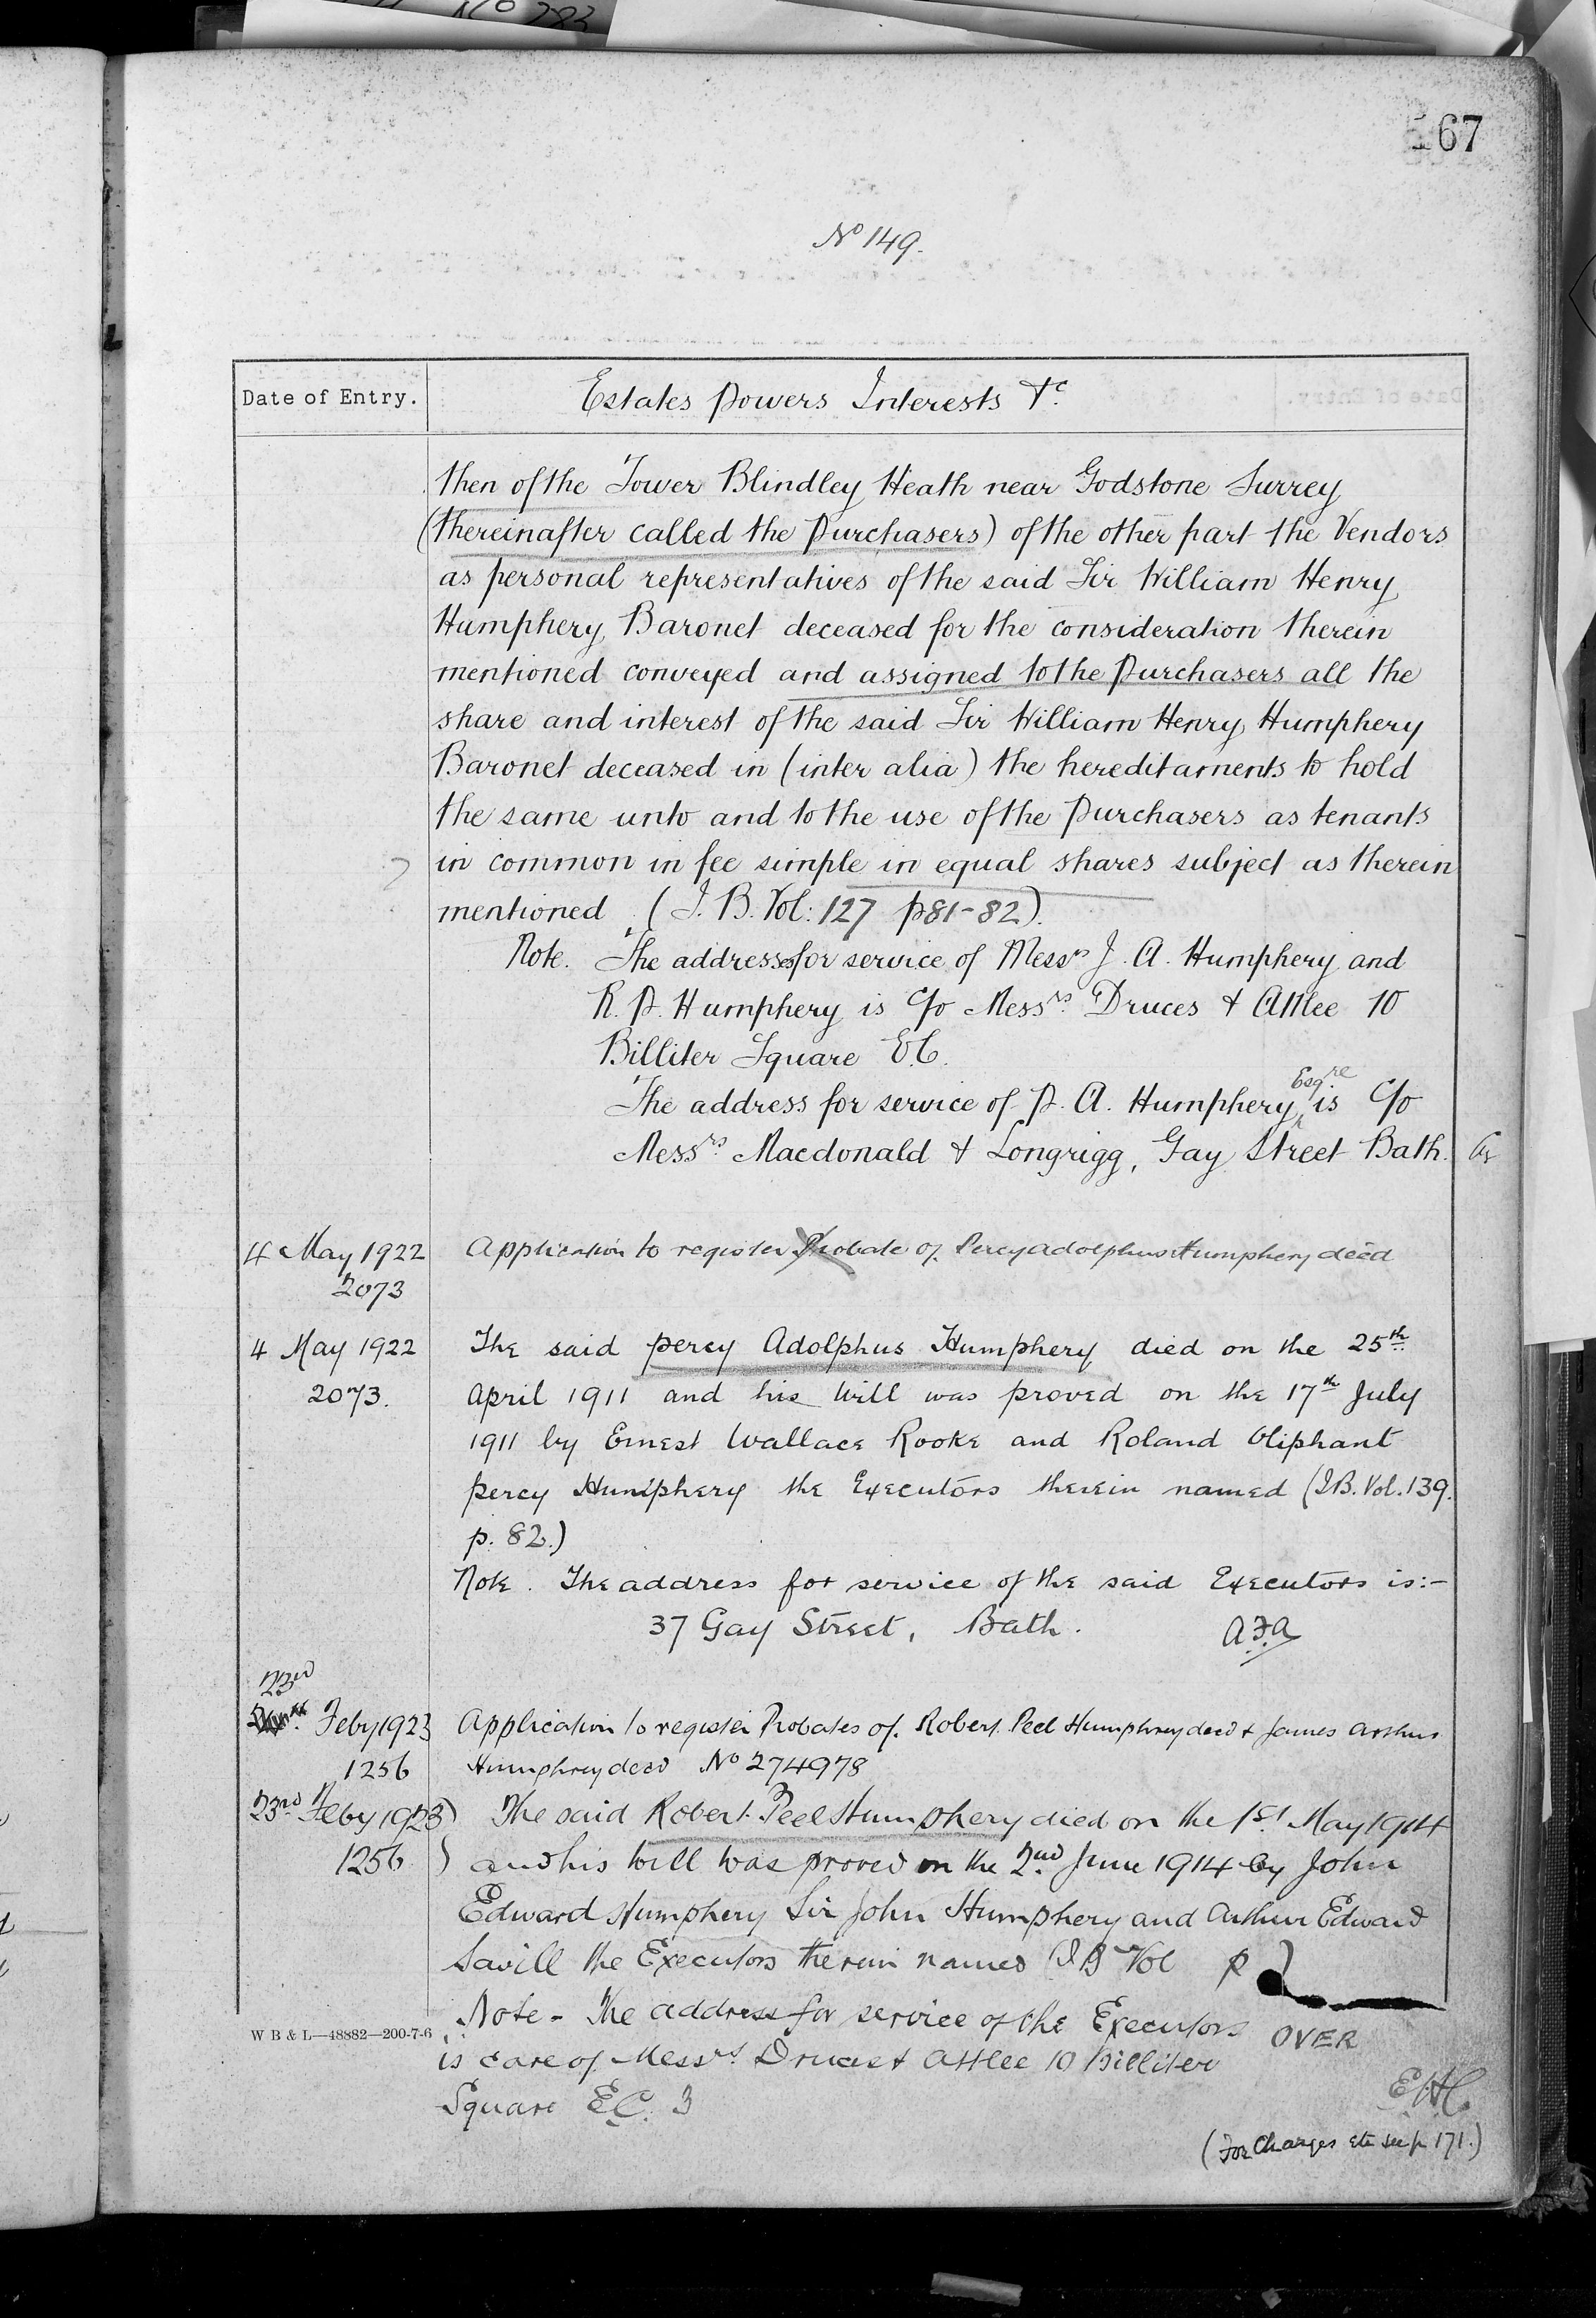 No 283
167
No 149.
Date of Entry.
Estates Powers Interests &c.
then of the Tower Blindley Heath near Godstone Surrey
(thereinafter called the Purchasers) of the other part the Vendors
as personal representatives of the said Sir William Henry
Humphery Baronet deceased for the consideration therein
mentioned conveyed and assigned to the Purchasers all the
share and interest of the said Sir William Henry Humphery
Baronet deceased in (inter alia) the hereditaments to hold
the same unto and to the use of the Purchasers as tenants
in common in fee simple in equal shares subject as therein
mentioned (I. B. Vol: 127 p81-82).
Note. The addresses for service of Messrs J. A. Humphery and
R. P. Humphery is c/o Messrs. Druces & Attlee 10
Billiter Square E.C.
The address for service of P. A. Humphery Esqre. is c/o
Messrs. Macdonald & Longrigg, Gay Street Bath.
4 May 1922 Application to register Probate of Percy Adolphus Humphery decd
2073
4 May 1922 The said Percy Adolphus Humphery died on the 25th
2073. April 1911 and his Will was proved on the 17th July
1911 by Ernest Wallace Rooke and Roland Oliphant
Percy Humphery the Executors therein named (I.B. Vol. 139.
p. 82.)
Note. The address for service of the said Executors is:-
37 Gay Street, Bath. A.F.A
23rd
Feby 1923 Application to register Probates of Robert Peel Humphrey decd & James Arthur
1256 Humphrey decd No 274978
23rd Feby 1923) The said Robert Peel Humphery died on the 1st May 1914
1256 ) and his will was proved on the 2nd June 1914 by John
Edward Humphery Sir John Humphery and Arthur Edward
Savill the Executors therein named (I B Vol p )
Note - The address for service of the Executors OVER
W B & L—48882—200-7-6
is care of Messrs Druces & Attlee 10 Billiter
Square E.C. 3 E.H.C.
(For Charges etc see p 171.)